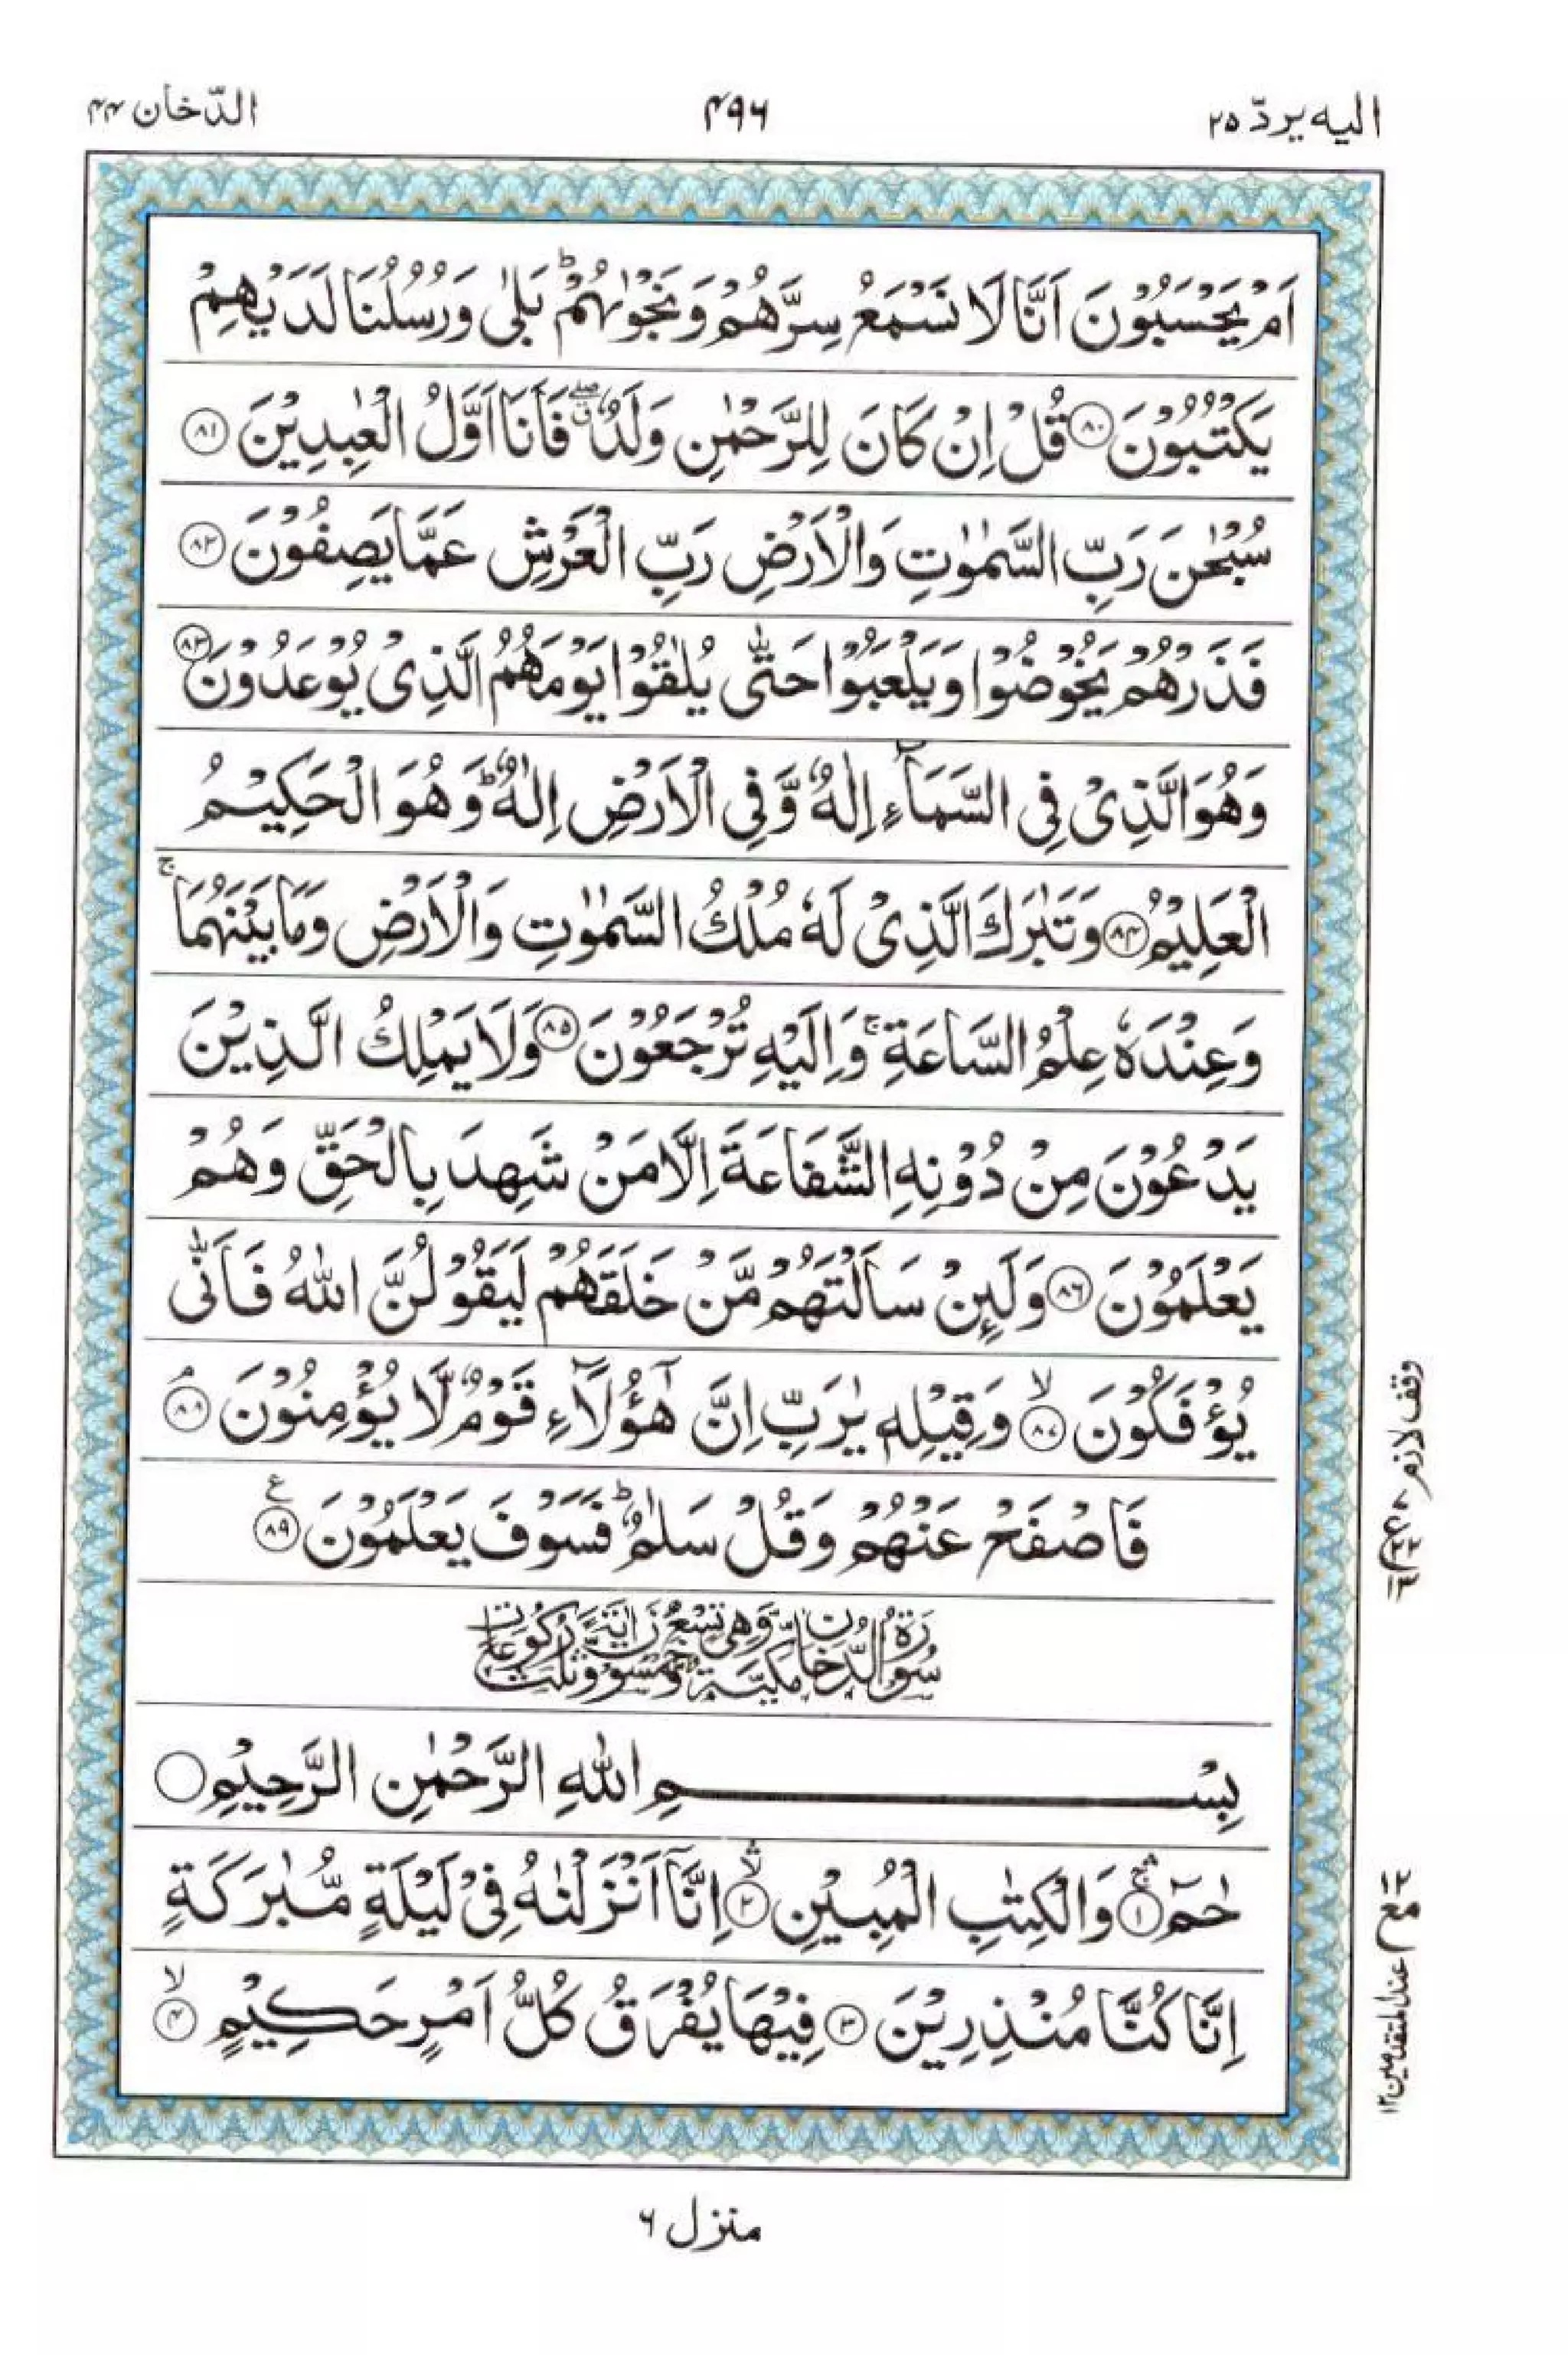 الیه یردّ ۲۵
۴۹۶
الدّخان ۴۴
اَمْ یَحْسَبُوْنَ اَنَّا لَا نَسْمَعُ سِرَّهُمْ وَنَجْوٰىهُمْ ؕ بَلٰى وَرُسُلُنَا لَدَیْهِمْ
یَكْتُبُوْنَ ﴿۸۰﴾ قُلْ اِنْ كَانَ لِلرَّحْمٰنِ وَلَدٌ ۖۗ فَاَنَا اَوَّلُ الْعٰبِدِیْنَ ﴿۸۱﴾
سُبْحٰنَ رَبِّ السَّمٰوٰتِ وَالْاَرْضِ رَبِّ الْعَرْشِ عَمَّا یَصِفُوْنَ ﴿۸۲﴾
فَذَرْهُمْ یَخُوْضُوْا وَیَلْعَبُوْا حَتّٰى یُلٰقُوْا یَوْمَهُمُ الَّذِیْ یُوْعَدُوْنَ ﴿۸۳﴾
وَهُوَ الَّذِیْ فِی السَّمَآءِ اِلٰهٌ وَّفِی الْاَرْضِ اِلٰهٌ ؕ وَهُوَ الْحَكِیْمُ
الْعَلِیْمُ ﴿۸۴﴾ وَتَبٰرَكَ الَّذِیْ لَهٗ مُلْكُ السَّمٰوٰتِ وَالْاَرْضِ وَمَا بَیْنَهُمَا ۚ
وَعِنْدَهٗ عِلْمُ السَّاعَةِ ۚ وَاِلَیْهِ تُرْجَعُوْنَ ﴿۸۵﴾ وَلَا یَمْلِكُ الَّذِیْنَ
یَدْعُوْنَ مِنْ دُوْنِهِ الشَّفَاعَةَ اِلَّا مَنْ شَهِدَ بِالْحَقِّ وَهُمْ
یَعْلَمُوْنَ ﴿۸۶﴾ وَلَىِٕنْ سَاَلْتَهُمْ مَّنْ خَلَقَهُمْ لَیَقُوْلُنَّ اللّٰهُ فَاَنّٰى
یُؤْفَكُوْنَ ﴿۸۷﴾ ۙ وَقِیْلِهٖ یٰرَبِّ اِنَّ هٰۤؤُلَآءِ قَوْمٌ لَّا یُؤْمِنُوْنَ ﴿۸۸﴾ ۘ
فَاصْفَحْ عَنْهُمْ وَقُلْ سَلٰمٌ ؕ فَسَوْفَ یَعْلَمُوْنَ ﴿۸۹﴾ ع
سُوْرَةُ الدُّخَانِ مَكِّیَّةٌ وَّهِیَ تِسْعٌ وَّخَمْسُوْنَ اٰیَةً وَّثَلٰثُ رُكُوْعَاتٍ
بِسْمِ اللّٰهِ الرَّحْمٰنِ الرَّحِیْمِ
حٰمٓ ﴿۱﴾ وَالْكِتٰبِ الْمُبِیْنِ ﴿۲﴾ ۙ اِنَّاۤ اَنْزَلْنٰهُ فِیْ لَیْلَةٍ مُّبٰرَكَةٍ
اِنَّا كُنَّا مُنْذِرِیْنَ ﴿۳﴾ فِیْهَا یُفْرَقُ كُلُّ اَمْرٍ حَكِیْمٍ ﴿۴﴾ ۙ
وقف لازم
عند المتقدمین ۱۲
منزل ۶